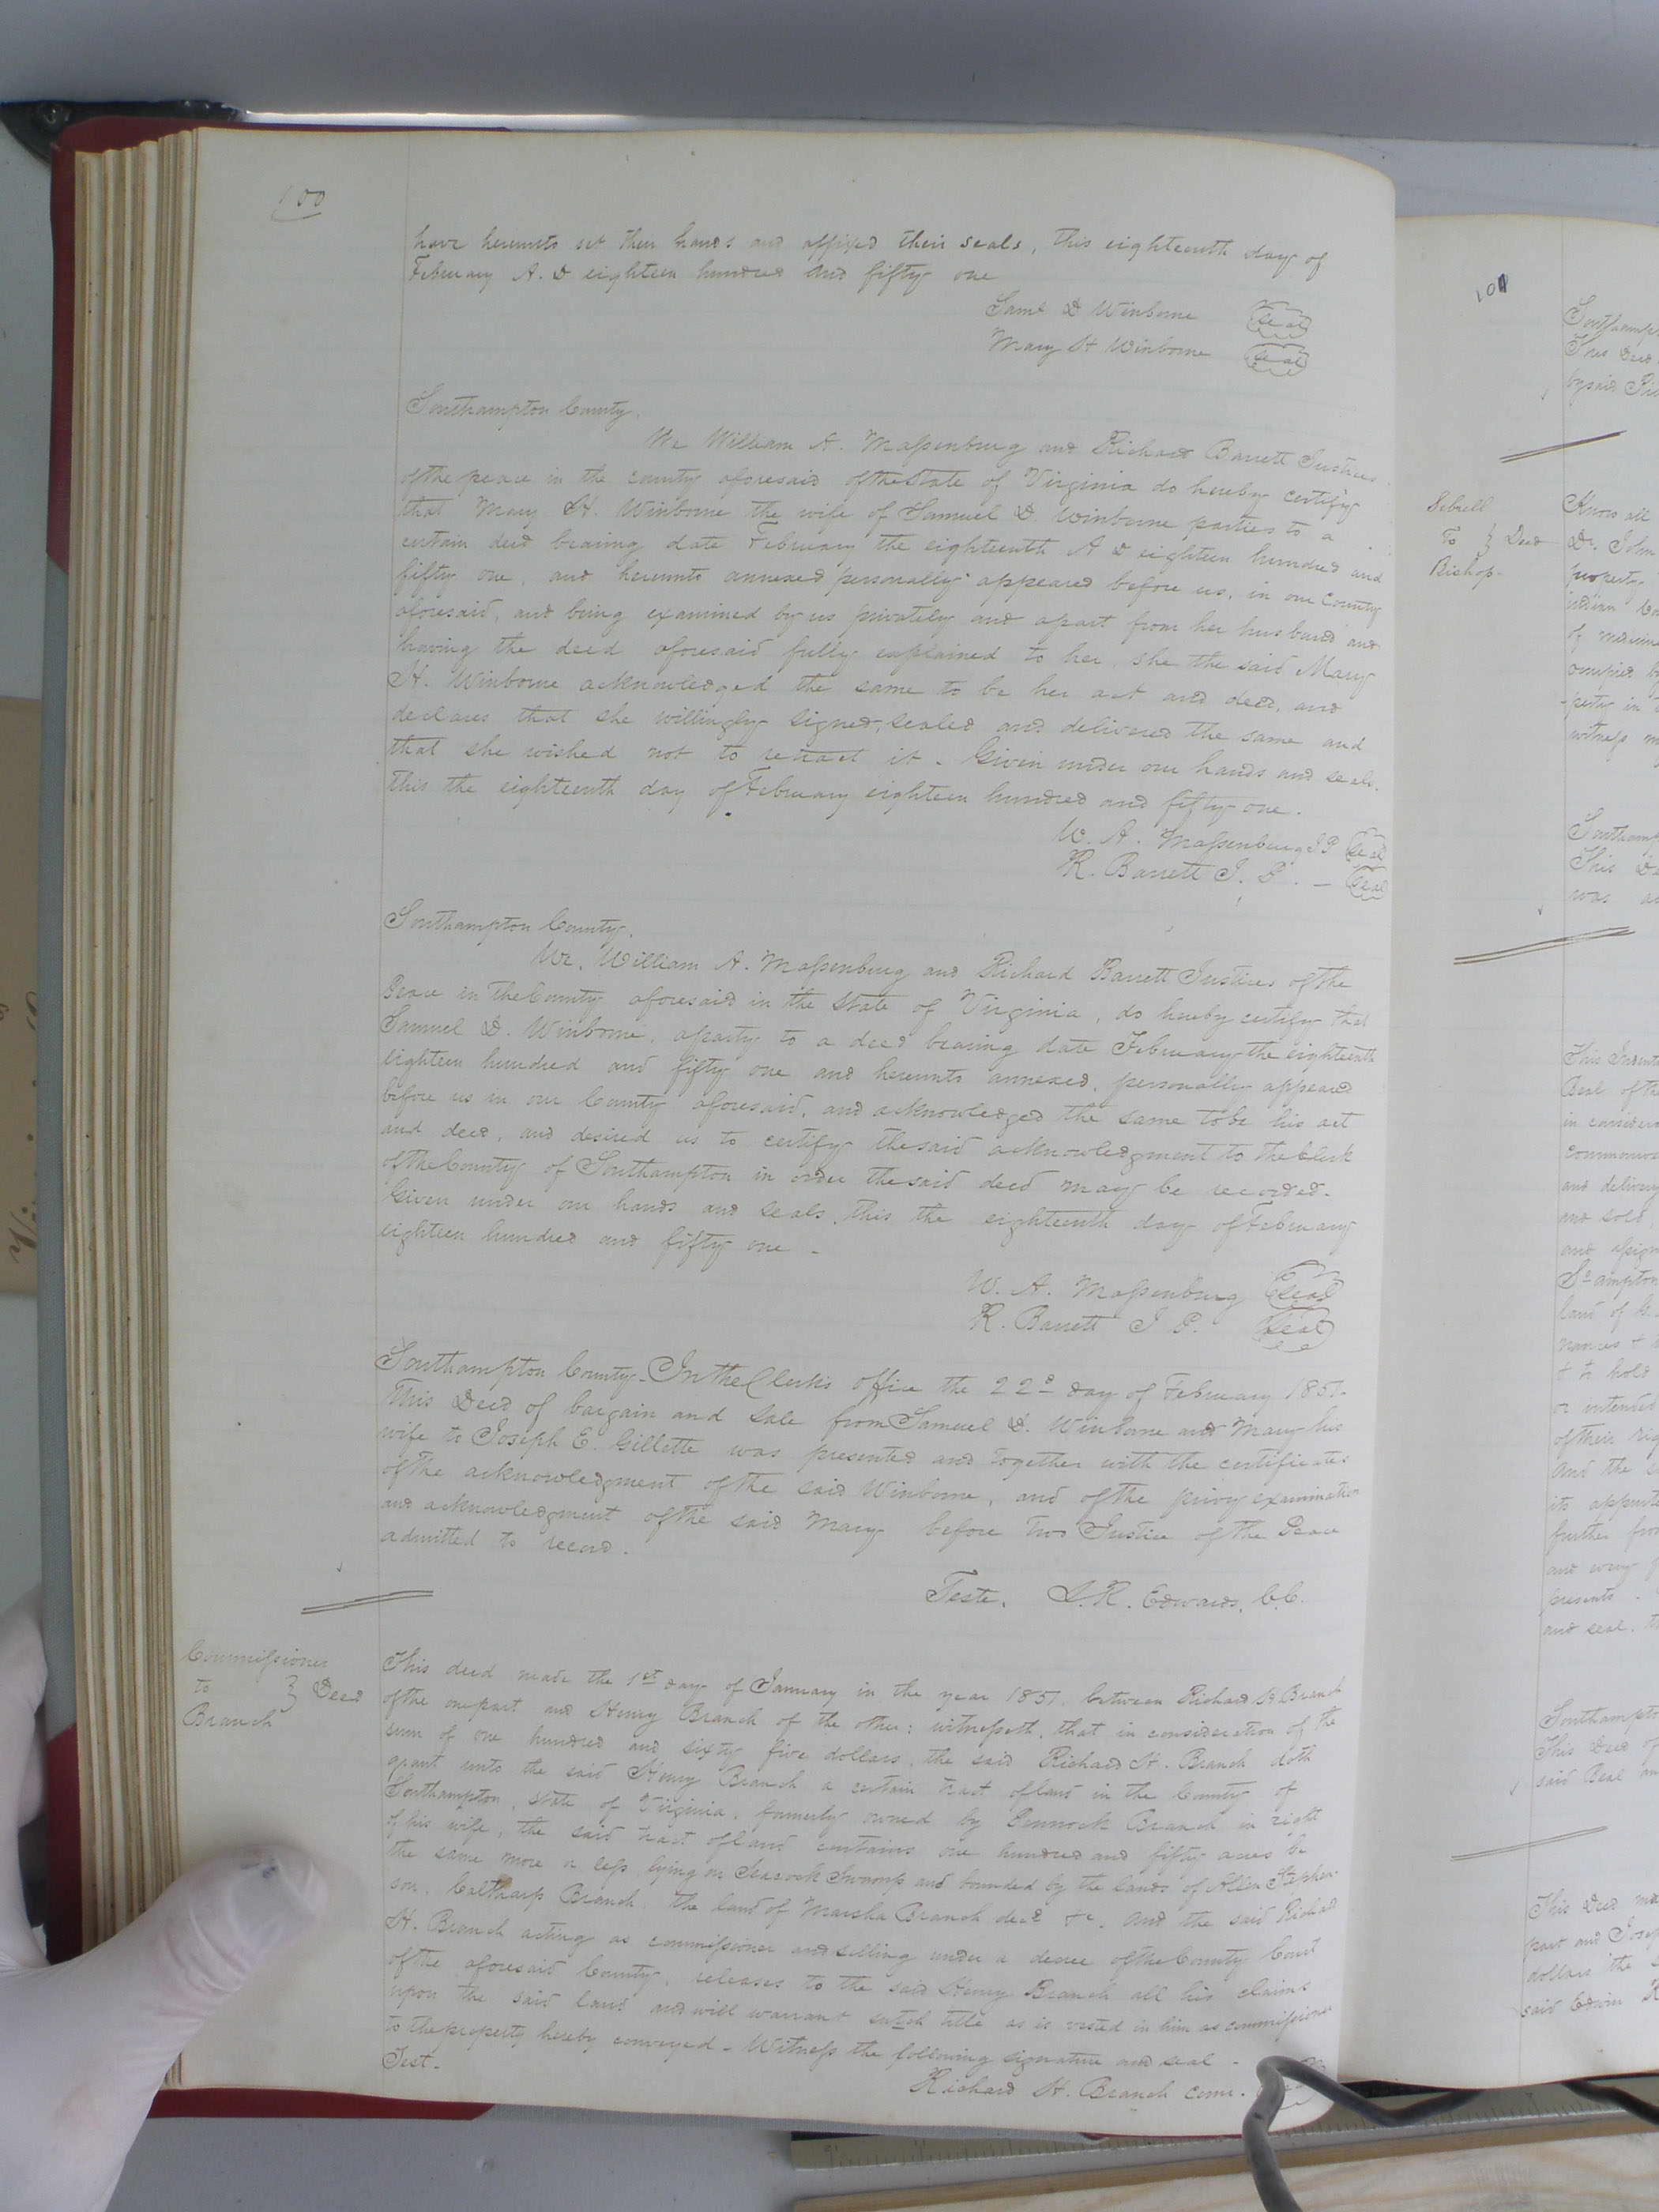 100
have hereunto set their hands and affixed their seals, this eighteenth day of
February A. D eighteen hundred and fifty one
Saml D Winborne Seal
Mary H Winborne Seal
Southampton County.
We William A. Massenburg and Richard Barrett Justices
of the peace in the county aforesaid of the State of Virginia do hereby certify
that Mary H. Winborne the wife of Samuel D. Winborne parties to a
certain deed bearing date February the eighteenth A D eighteen hundred and
fifty one, and hereunto annexed personally appeared before us, in our County
aforesaid, and being examined by us privately and apart from her husband and
having the deed aforesaid fully explained to her, she the said Mary
H. Winborne acknowledged the same to be her act and deed, and
declares that she willingly signed, sealed and delivered the same and
that she wished not to retract it. Given under our hands and seals.
this the eighteenth day of February eighteen hundred and fifty one.
W. A. Massenburg J P Seal
R. Barrett J. P. - Seal
Southampton County.
We, William A. Massenburg and Richard Barrett Justices of the
Peace in the County aforesaid in the State of Virginia, do hereby certify that
Samuel D. Winborne, a party to a deed bearing date February the eighteenth
eighteen hundred and fifty one and hereunto annexed, personally appeared
before us in our County aforesaid, and acknowledged the same to be his act
and deed, and desired us to certify the said acknowledgment to the Clerk
of the County of Southampton in order the said deed may be recorded.
Given under our hands and seals, this the eighteenth day of February
eighteen hundred and fifty one -
W. A. Massenburg Seal
R. Barrett J P. Seal
Southampton County- In the Clerk's office the 22d day of February 1851.
This Deed of bargain and sale from Samuel D. Winborne and Mary his
wife to Joseph E. Gillette was presented and together with the certificates
of the acknowledgment of the said Winborne, and of the privy examination
and acknowledgment of the said Mary before two Justice of the Peace
admitted to record.
Teste, L. R. Edwards, C.C.
Commissioner
to } Deed
Branch
This deed made the 1st day of January in the year 1851, between Richard H Branch
of the one part and Henry Branch of the other: witnesseth, that in consideration of the
sum of one hundred and sixty five dollars, the said Richard H. Branch doth
grant unto the said Henry Branch a certain tract of land in the County of
Southampton, State of Virginia, formerly owned by Branch in right
of his wife, the said tract of land contains one hundred and fifty acres be
the same more or less lying on Seacock Swamp and bounded by the lands of Allen Stephen-
son, Caltharp Branch, the land of Branch decd &c. And the said Richard
H. Branch acting as commissioner and selling under a decree of the County Court
of the aforesaid County, releases to the said Henry Branch all his claims
upon the said land and will warrant such title as is vested in him as commissioner
to the property hereby conveyed - Witness the following signature and seal -
Test-
Richard H. Branch comr.
101
Southamp
This Deed
by said
Sebrell
To } Deed
Bishop-
Know all
Dr. John
property
of
occupied
witness
Southamp
This De
was
This Indent
Beal of the
in consider
commonwe
and delivery
and sold,
and assign
So ampton
land of
nances &
& to hold
or intended
of their rig
And the
its appurte
further from
and every
presents
and seal,
Southampto
This Deed of
said Beal an
This Deed ma
part and Josep
dollars the
said Edwin